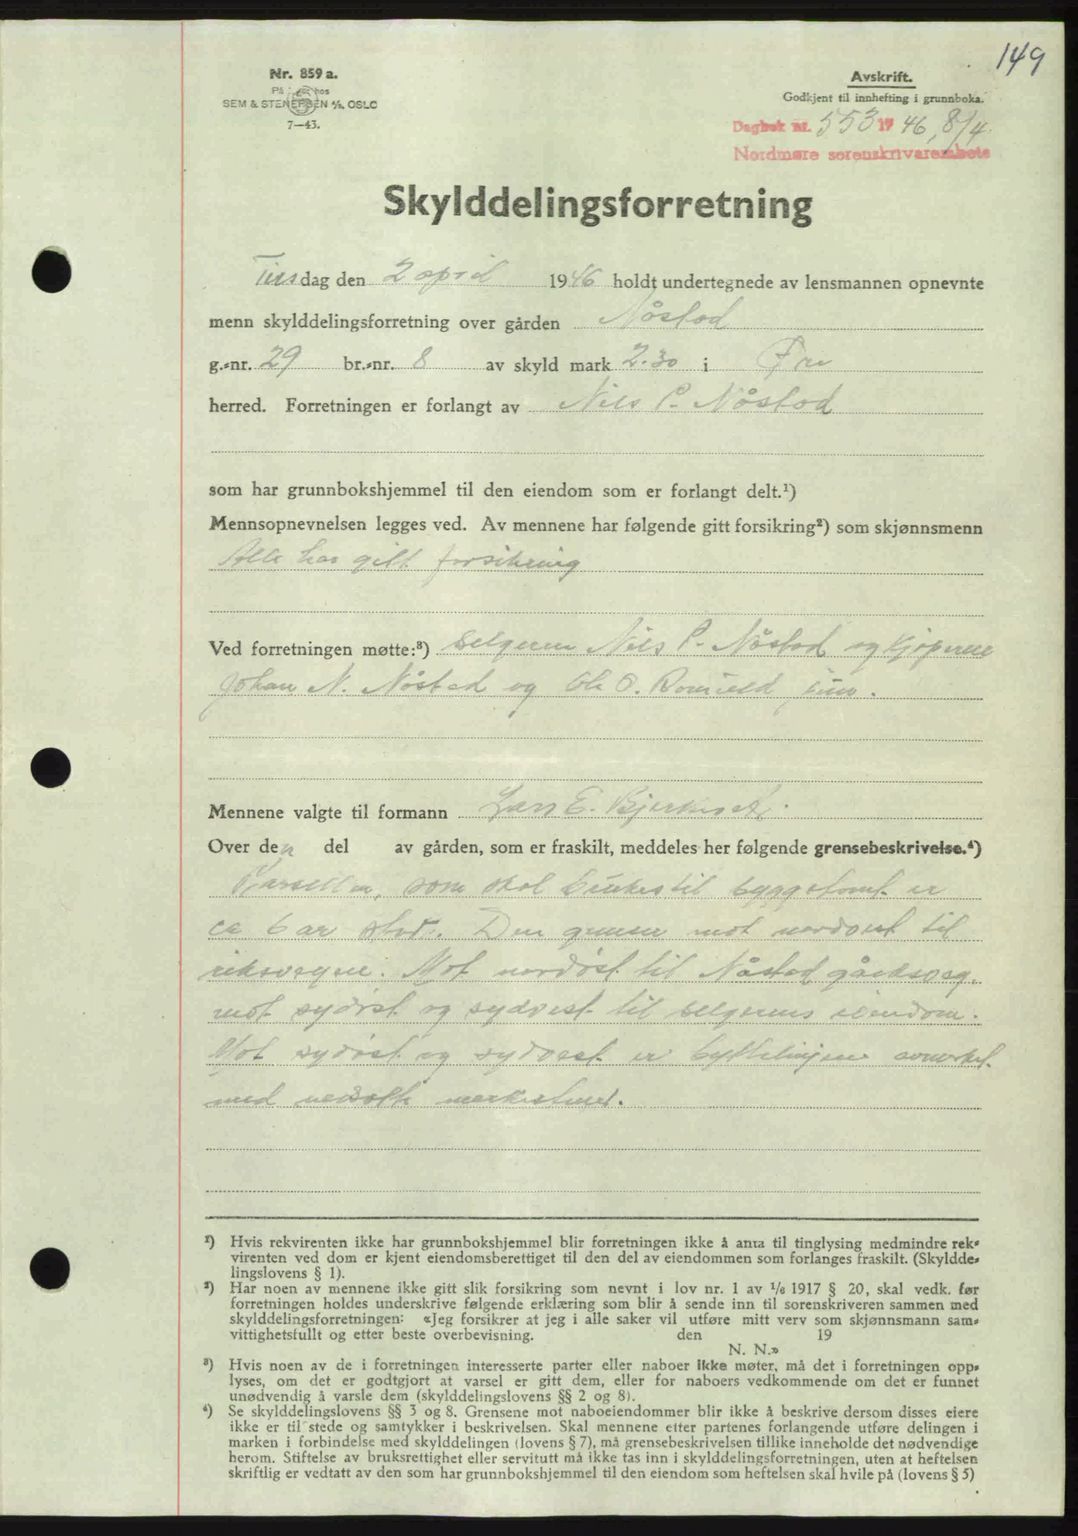 149
Nr. 859 a.
Avskrift.
SEM & STENERSEN A/S, OSLO
Godkjent til innhefting i grunnboka.
7—43.
Dagbok nr. 553 1946, 8/4.
Nordmøre sorenskrivarembete
Skylddelingsforretning
Tirsdag den 2 april 1946 holdt undertegnede av lensmannen opnevnte
menn skylddelingsforretning over gården Nåstad
g.-nr. 29 br.-nr. 8 av skyld mark 2.30 i Øre
herred. Forretningen er forlangt av Nils P. Nåstad
som har grunnbokshjemmel til den eiendom som er forlangt delt.¹)
Mennsopnevnelsen legges ved. Av mennene har følgende gitt forsikring²) som skjønnsmenn
Alle har gitt forsikring
Ved forretningen møtte:³) selgeren Nils P. Nåstad og kjøperne
Johan N. Nåstad og Ole O. jun.
Mennene valgte til formann Lars E.
Over den del av gården, som er fraskilt, meddeles her følgende grensebeskrivelse.⁴)
Parsellen, som skal brukes til byggetomt er
ca 6 ar stor. Den grenser mot nordvest til
riksvegen. Mot nordøst til Nåstad gårdsveg,
mot sydøst og sydvest til selgerens eiendom.
Mot sydøst og sydvest er byttelinjene avmerket
med nedsatte merkestener.
¹) Hvis rekvirenten ikke har grunnbokshjemmel blir forretningen ikke å anta til tinglysing medmindre rek-
virenten ved dom er kjent eiendomsberettiget til den del av eiendommen som forlanges fraskilt. (Skyldde-
lingslovens § 1).
²) Har noen av mennene ikke gitt slik forsikring som nevnt i lov nr. 1 av 1/6 1917 § 20, skal vedk. før
forretningen holdes underskrive følgende erklæring som blir å sende inn til sorenskriveren sammen med
skylddelingsforretningen: «Jeg forsikrer at jeg i alle saker vil utføre mitt verv som skjønnsmann sam-
vittighetsfullt og etter beste overbevisning. den 19
N. N.»
³) Hvis noen av de i forretningen interesserte parter eller naboer ikke møter, må det i forretningen opp-
lyses, om det er godtgjort at varsel er gitt dem, eller for naboers vedkommende om det er funnet
unødvendig å varsle dem (skylddelingslovens §§ 2 og 8).
⁴) Se skylddelingslovens §§ 3 og 8. Grensene mot naboeiendommer blir ikke å beskrive dersom disses eiere
ikke er til stede og samtykker i beskrivelsen. Skal mennene etter partenes forlangende utføre delingen i
marken i forbindelse med skylddelingen (lovens § 7), må grensebeskrivelsen tillike inneholde det nødvendige
herom. Stiftelse av bruksrettighet eller servitutt må ikke tas inn i skylddelingsforretningen, uten at heftelsen
skriftlig er vedtatt av den som har grunnbokshjemmel til den eiendom som heftelsen skal hvile på (lovens § 5)